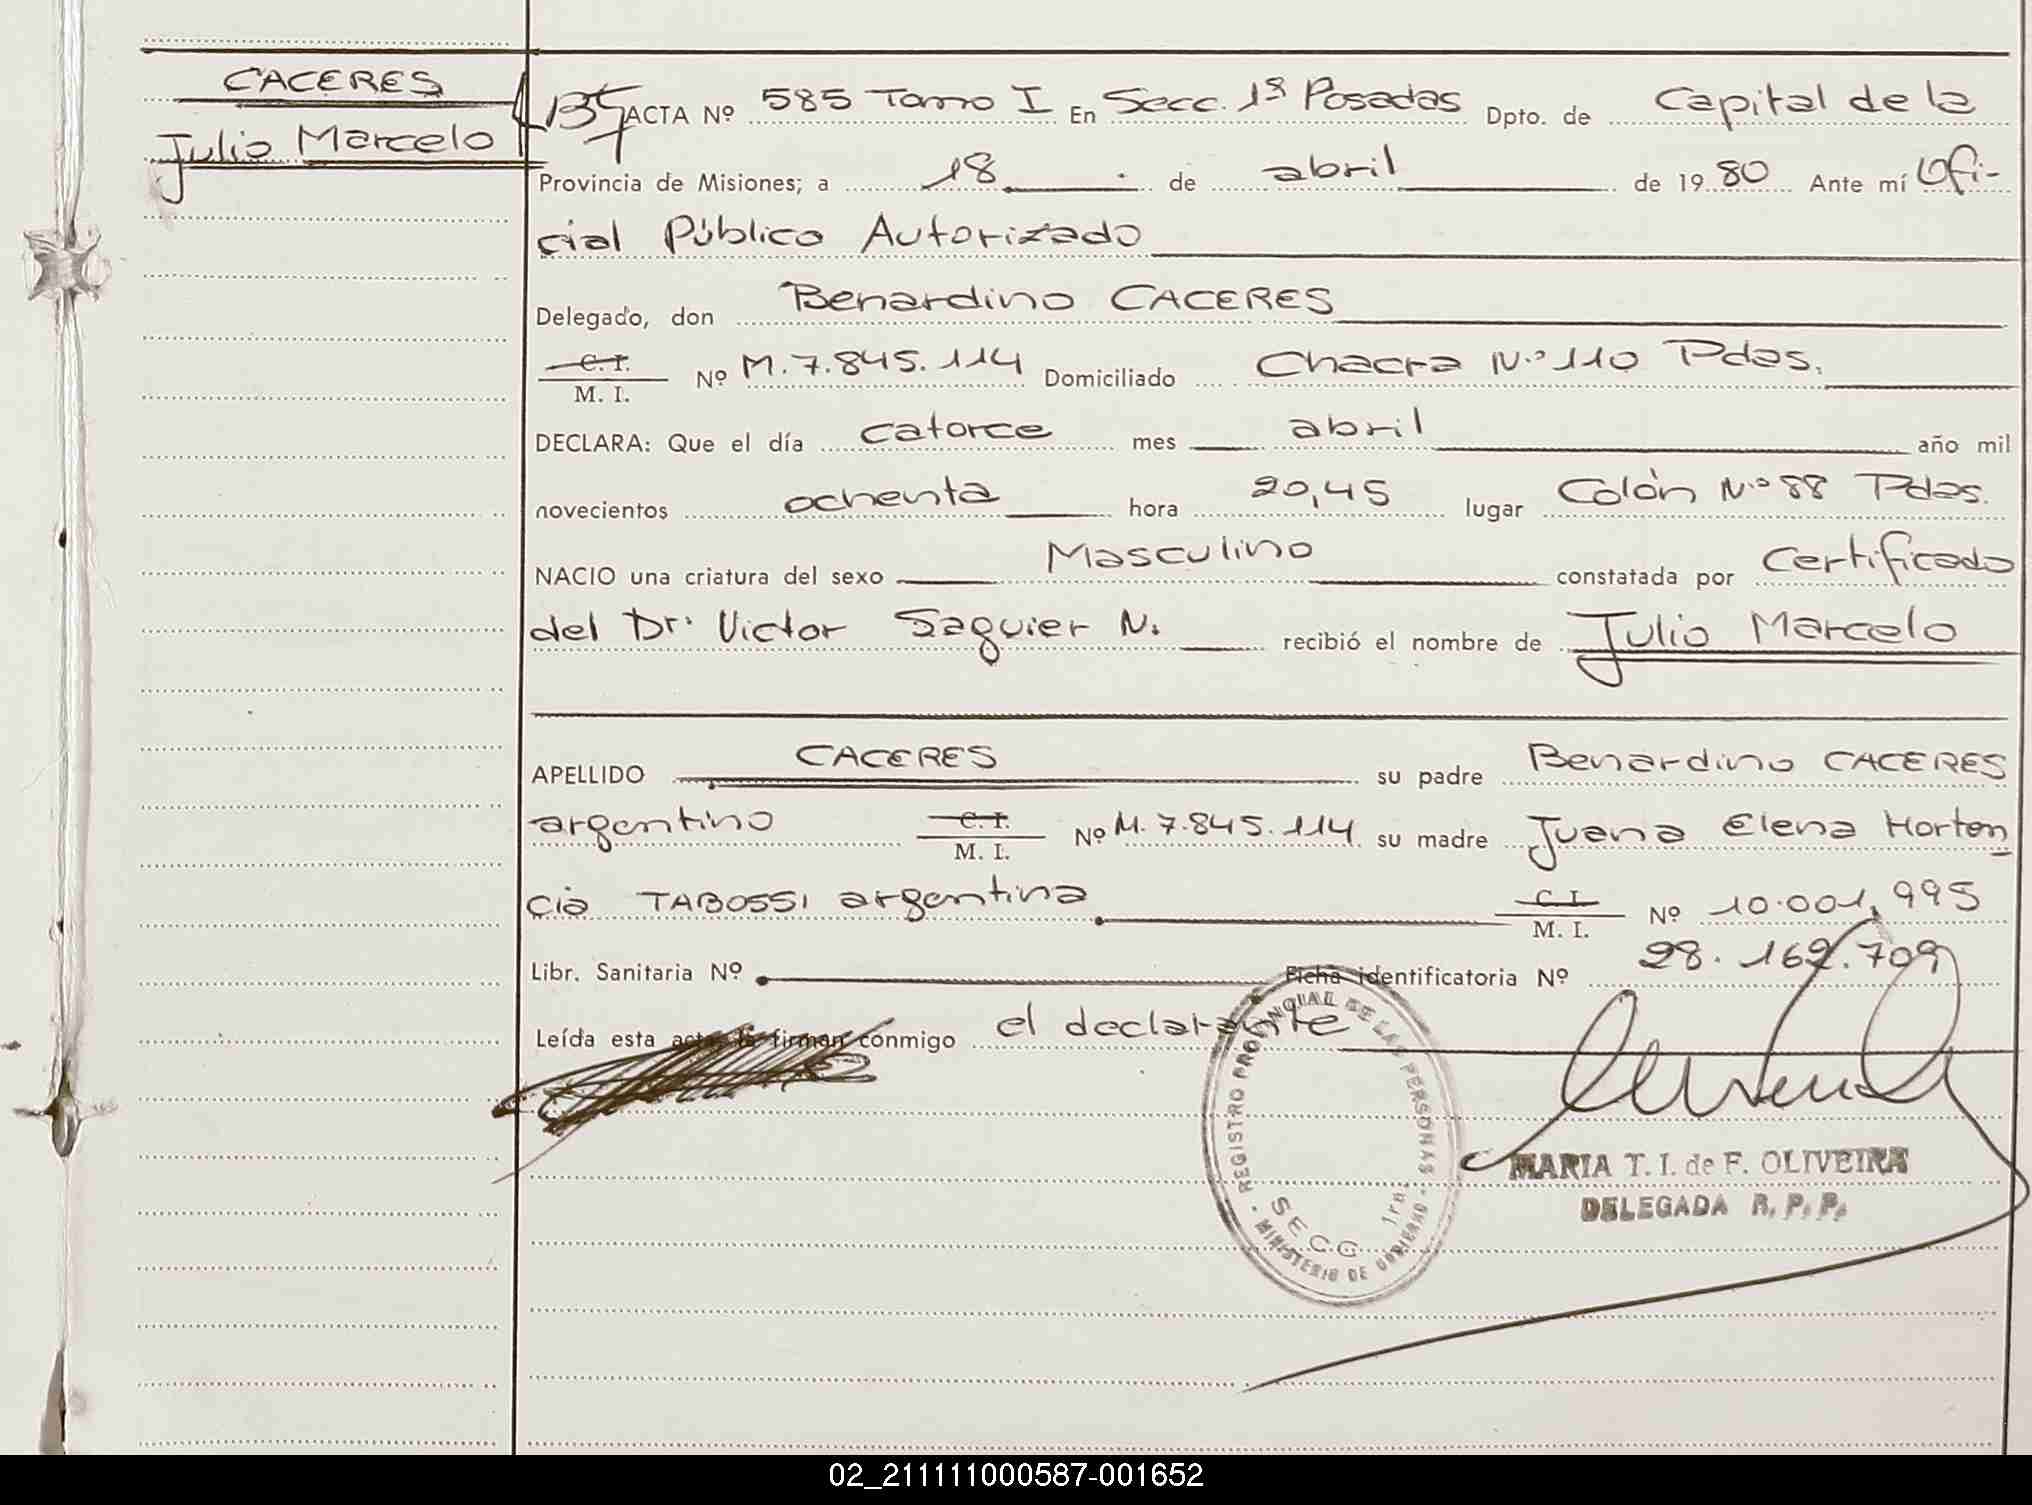 CACERES
Julio Marcelo
ACTA Nº 585 Tomo I En Secc. 1ª Posadas Dpto. de Capital de la
Provincia de Misiones; a 18 de abril de 1980 Ante mí Ofi-
cial Público Autorizado
Delegado, don Benardino CACERES
C. I.
M. I.
Nº M. 7.845.114 Domiciliado Chacra N.º 110 Pdas.
DECLARA: Que el día catorce mes abril año mil
novecientos ochenta hora 20,45 lugar Colón N.º 88 Pdas.
NACIO una criatura del sexo Masculino constatada por Certificado
del Dr. Victor Saguier N. recibió el nombre de Julio Marcelo
APELLIDO CACERES su padre Benardino CACERES
argentino C. I.
M. I.
Nº M. 7.845.114 su madre Juana Elena Horten
cia TABOSSI argentina C. I.
M. I.
Nº 10.001.995
Libr. Sanitaria Nº Ficha identificatoria Nº 28.162.709
Leída esta acta la firman conmigo el declarante
REGISTRO PROVINCIAL DE LAS PERSONAS - MINISTERIO DE GOBIERNO -
SECC. 1ra.
MARIA T. I. de F. OLIVEIRA
DELEGADA R. P. P.
02_211111000587-001652